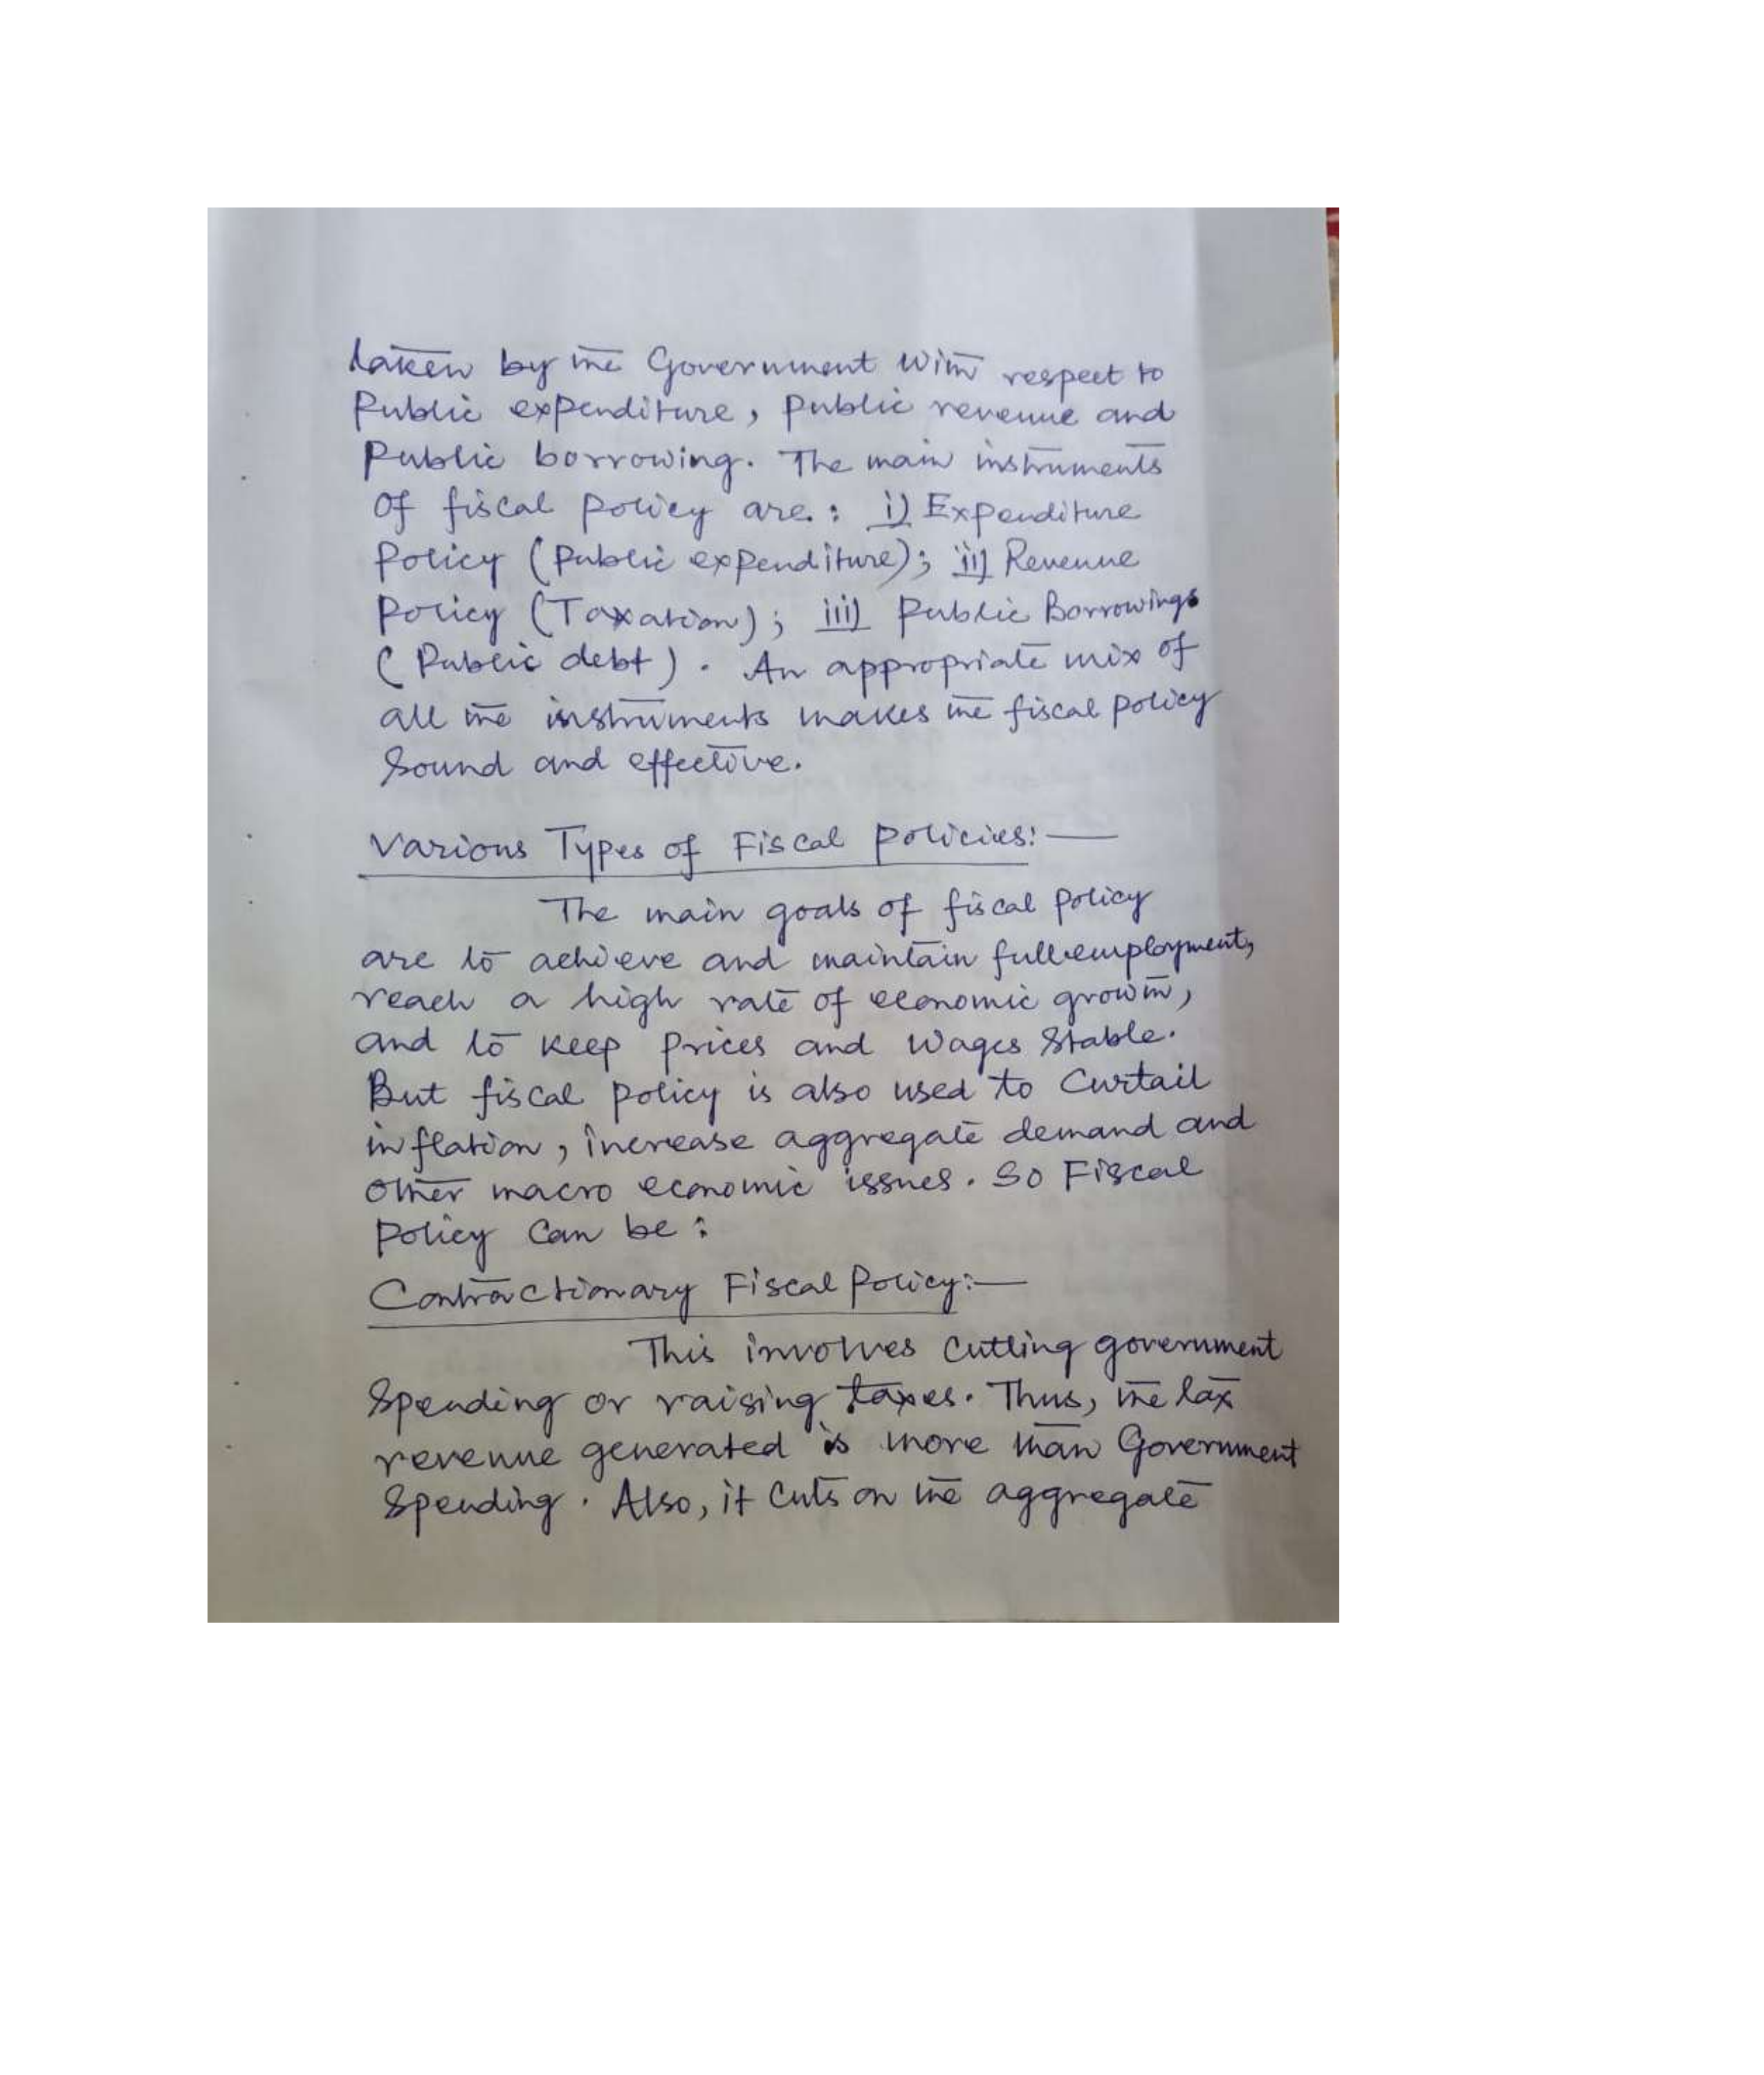 taken by the Government with respect to
Public expenditure, public revenue and
Public borrowing. The main instruments
of fiscal policy are: i) Expenditure
Policy (Public expenditure); ii) Revenue
Policy (Taxation); iii) Public Borrowings
(Public debt). An appropriate mix of
all the instruments makes the fiscal policy
Sound and effective.
Various Types of Fiscal Policies:—
The main goals of fiscal policy
are to achieve and maintain full employment,
reach a high rate of economic growth,
and to keep prices and wages stable.
But fiscal policy is also used to curtail
inflation, increase aggregate demand and
other macro economic issues. So Fiscal
Policy can be:
Contractionary Fiscal Policy:—
This involves cutting government
Spending or raising taxes. Thus, the tax
revenue generated is more than Government
Spending. Also, it cuts on the aggregate